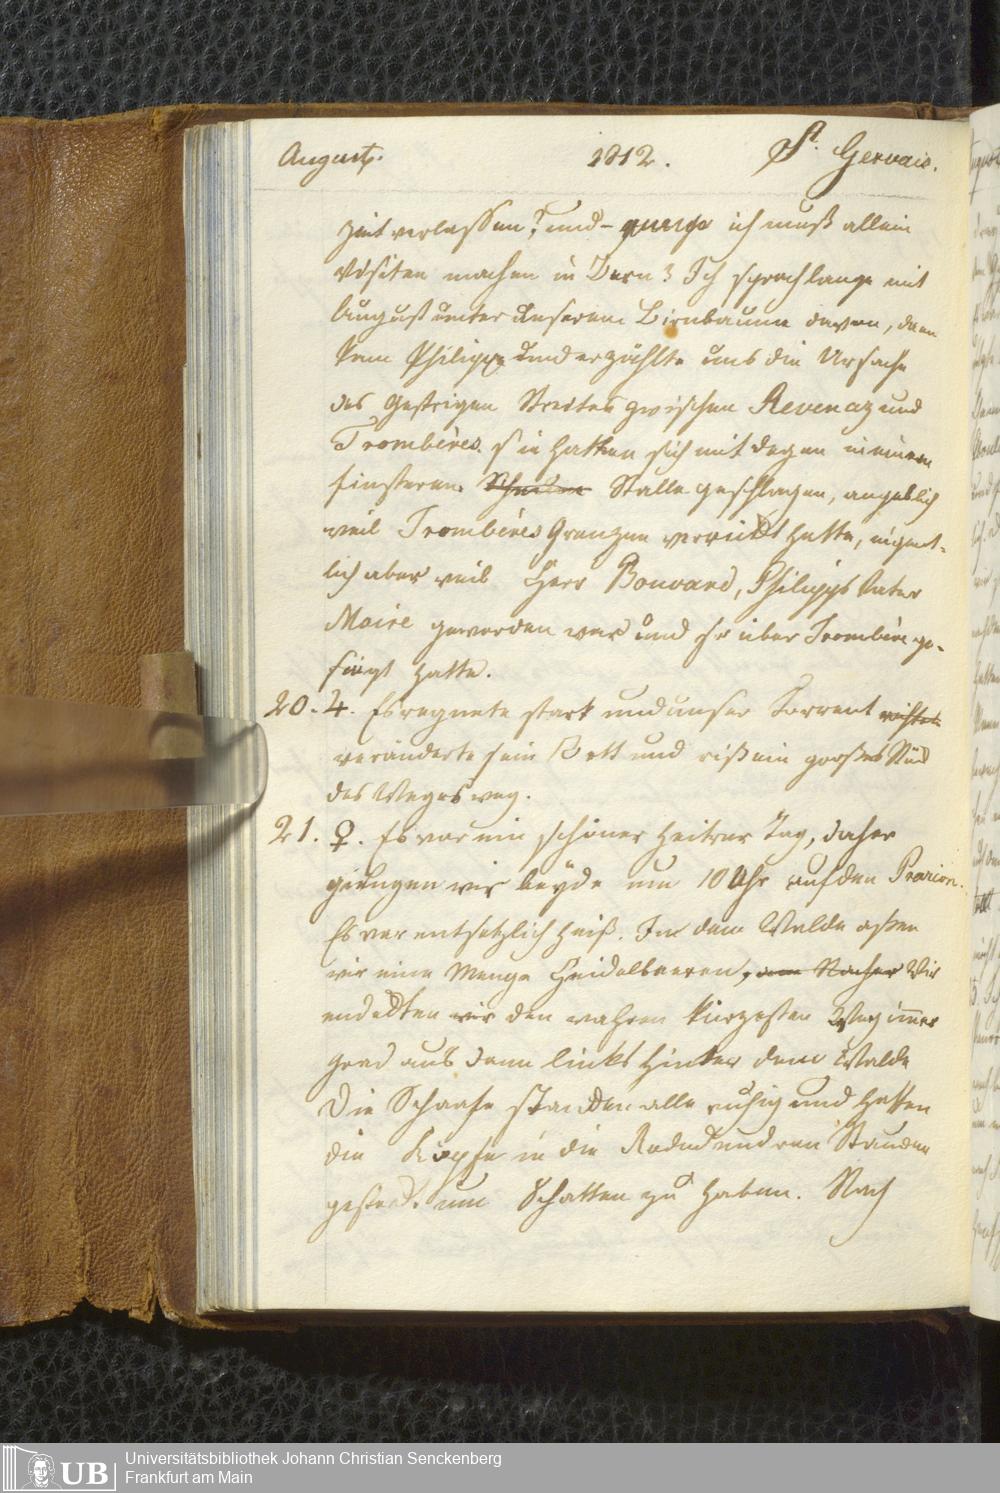 August. 1812. St. Gervais.
zeit verlassen, und ich muß allein
Visiten machen in Bern? Ich sprach lange mit
August unter unserem Birnbaume davon, dann
kam Philipp und erzählte uns die Ursache
des gestrigen Streites zwischen Revenaz und
Trombères. Sie hatten sich mit Degen in einem
finsteren Stalle geschlagen, angeblich
weil Trombères Gränzen verrückt hatte, eigent-
lich aber weil Herr Bouvard, Philipps Vater
Maire geworden war und er über Trombère ge-
siegt hatte.
20. ♃. Es regnete stark und unser Torrent
veränderte sein Bett und riß ein großes Stück
des Weges weg.
21. ♀. Es war ein schöner heitrer Tag, daher
giengen wir beyde um 10 Uhr auf den Prarion.
Es war entsetzlich heiß. In dem Walde aßen
wir eine Menge Heidelbeeren, Wir
endeckten wir den wahren kürzesten Weg immer
grad aus dann links hinter dem Walde
Die Schaafe standen alle ruhig und hatten
die Köpfe in die Stauden
gesteckt um Schatten zu haben. Nach
Universitätsbibliothek Johann Christian Senckenberg
UB Frankfurt am Main